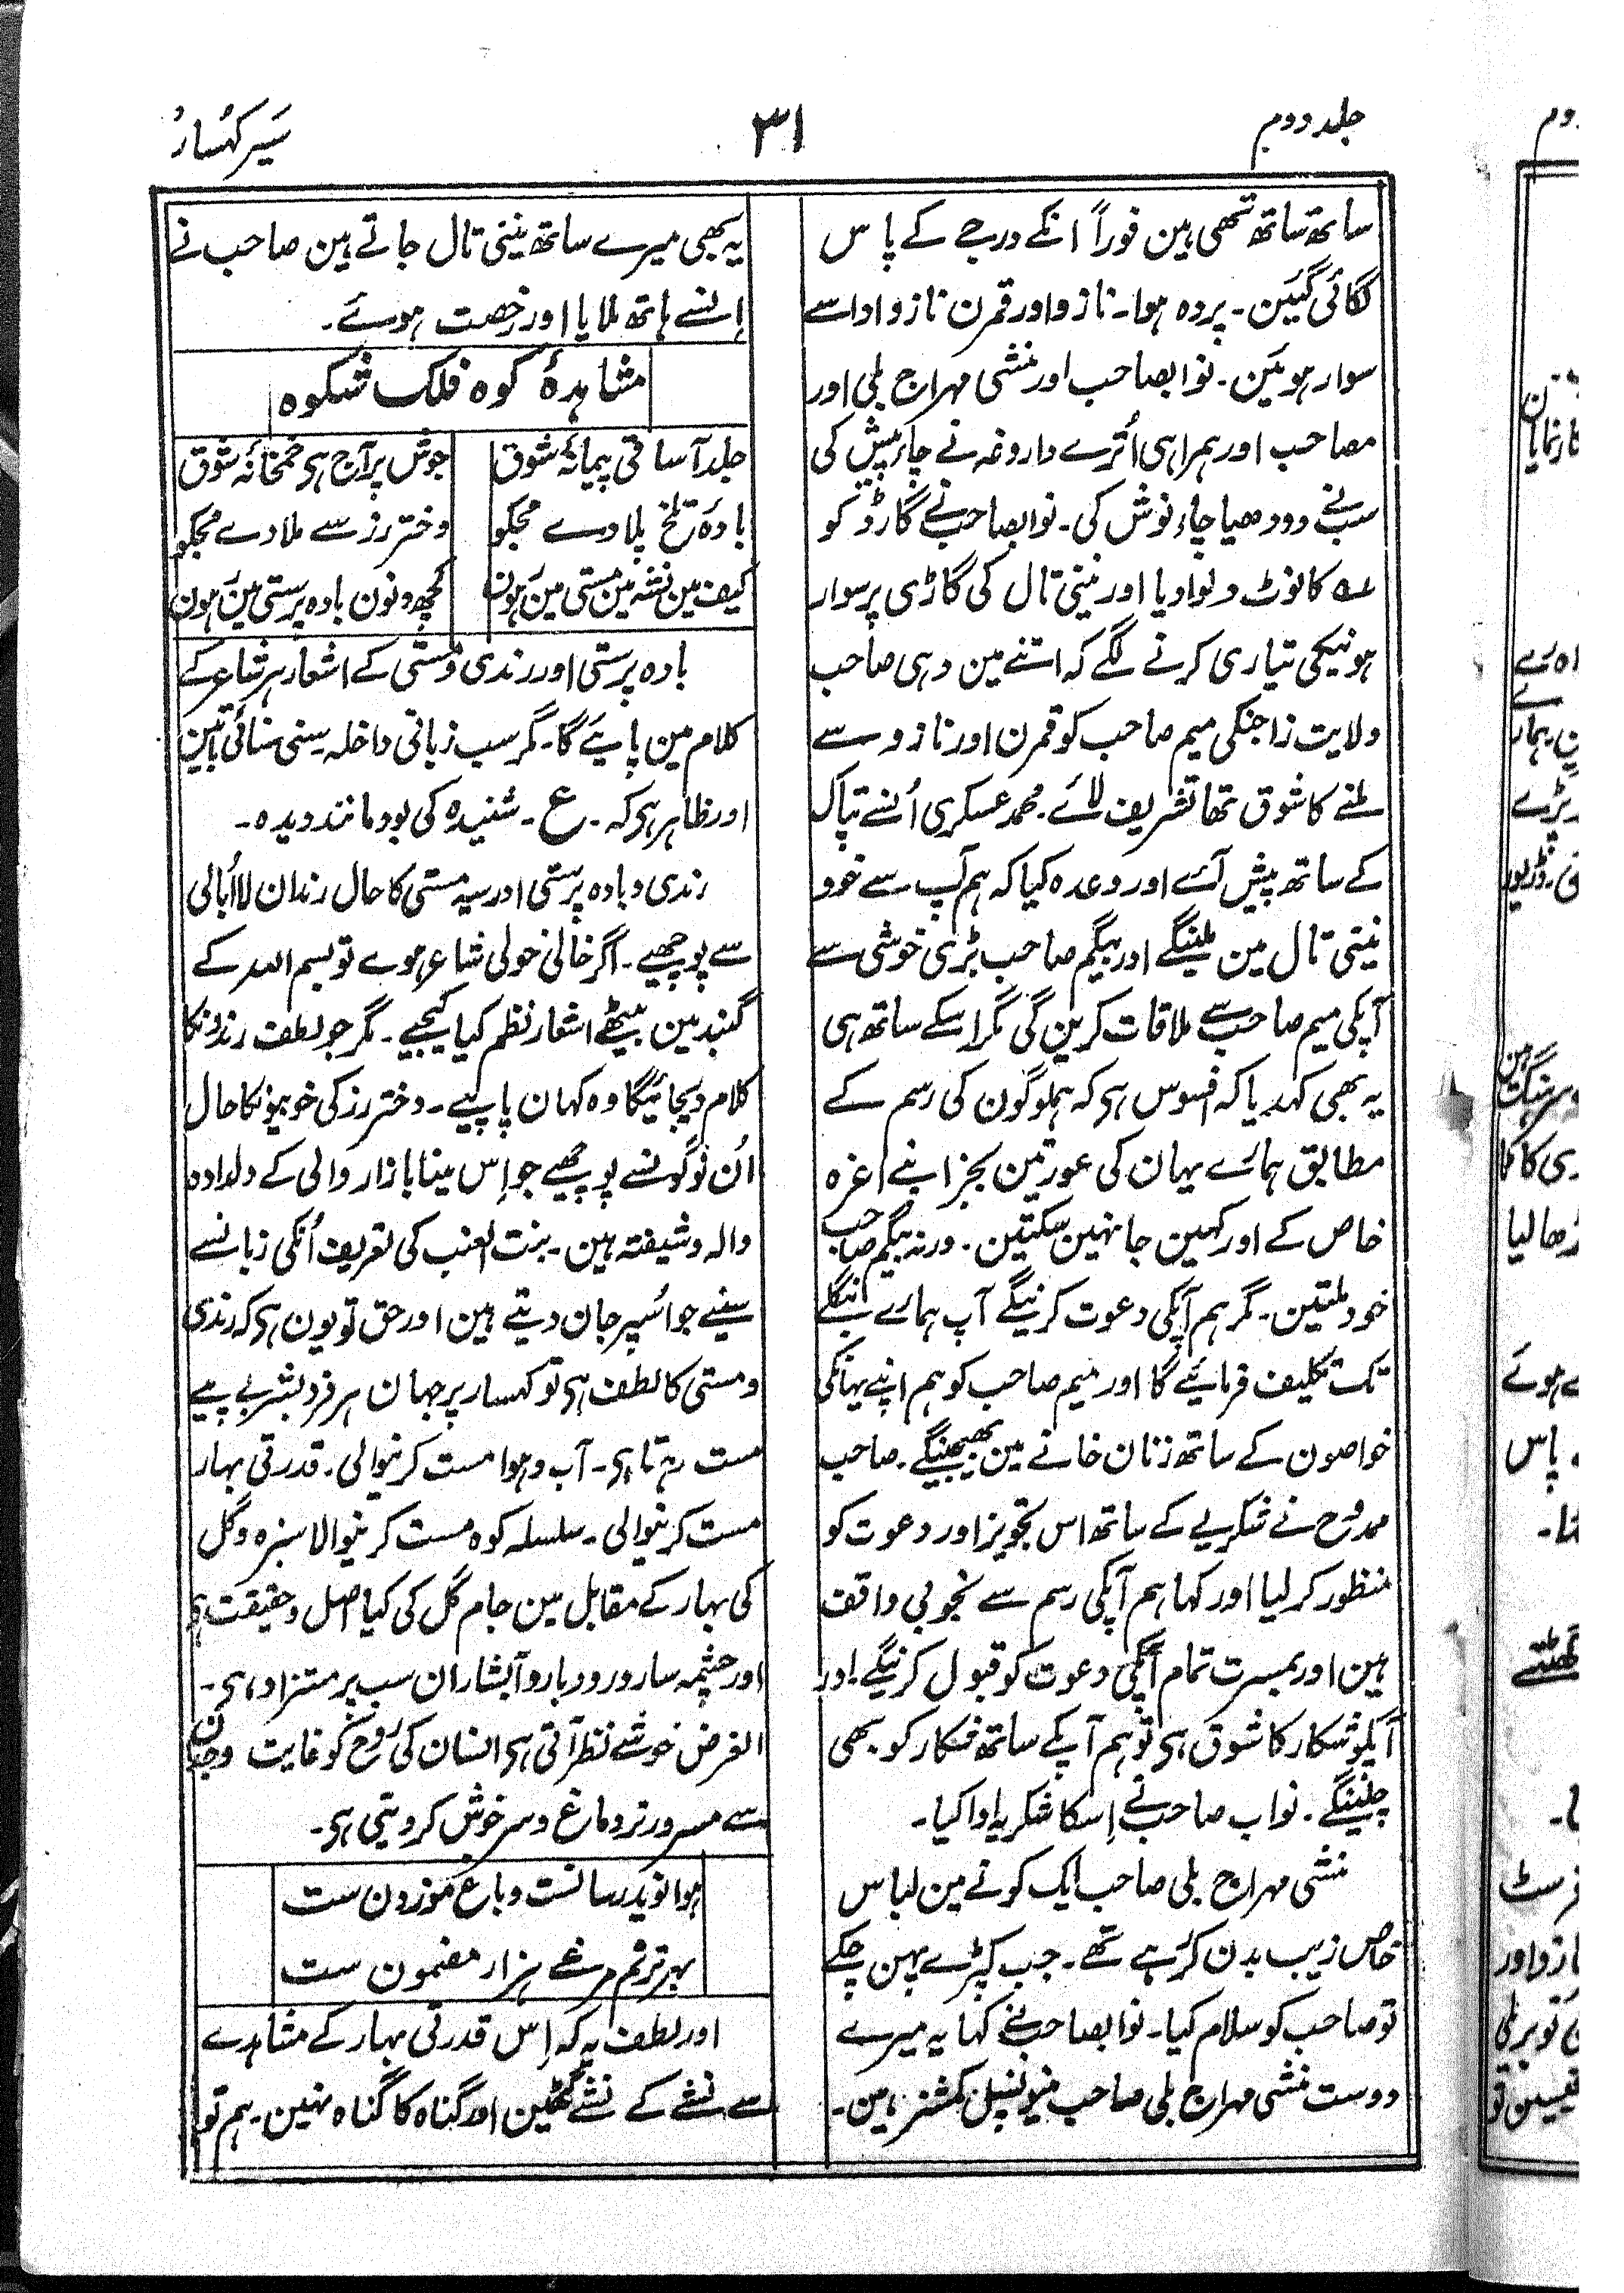 جلد دوم
۳۱
سَیر کُہسار
ساتھ ساتھ تھی ہین فوراً انکے درجے کے پاس
لگائی گئین۔ پردہ ہوا۔ نازو اور قمرن ناز و ادا سے
سوار ہوئین۔ نوابصاحب اور منشی مہراج بلی اور
مصاحب اور ہمراہی اُترے داروغہ نے چاء پیش کی
سبنے دودھیا چاء نوش کی۔ نوابصاحب نے گارڈ کو
کا نوٹ دلوا دیا اور نینی تال کی گاڑی پر سوار
ہونیکی تیاری کرنے لگے کہ اتنے مین وہی صاحب
ولایت زا جنکی میم صاحب کو قمرن اور نازو سے
ملنے کا شوق تھا تشریف لائے۔ محمد عسکری اُنسے تپاک
کے ساتھ پیش آئے اور وعدہ کیا کہ ہم آپ سے خود
نینی تال مین ملینگے اور بیگم صاحب بڑی خوشی سے
آپکی میم صاحب سے ملاقات کرین گی مگر اسکے ساتھ ہی
یہ بھی کہدیا کہ افسوس ہی کہ ہملوگون کی رسم کے
مطابق ہمارے یہان کی عورتین بجز اپنے اعزہ
خاص کے اور کہین جا نہین سکتین۔ ورنہ بیگم صاحب
خود ملتین۔ مگر ہم آپکی دعوت کرینگے آپ ہمارے بنگلے
تک تکلیف فرمائیے گا اور میم صاحب کو ہم اپنے یہانکی
خواصون کے ساتھ زنان خانے مین بھیجینگے۔ صاحب
ممدوح نے شکریے کے ساتھ اس تجویز اور دعوت کو
منظور کر لیا اور کہا ہم آپکی رسم سے بخوبی واقف
ہین اور بمسرت تمام آپکی دعوت کو قبول کرینگے اور
آپکو شکار کا شوق ہی تو ہم آپکے ساتھ شکار کو بھی
چلینگے۔ نواب صاحب نے اِسکا شکریہ ادا کیا۔
منشی مہراج بلی صاحب ایک کونے مین لباس
خاص زیب بدن کر رہے تھے۔ جب کپڑے پہن چکے
تو صاحب کو سلام کیا۔ نوابصاحب نے کہا یہ میرے
دوست منشی مہراج بلی صاحب میونسپل کمشنر ہین۔
یہ بھی میرے ساتھ نینی تال جاتے ہین صاحب نے
اِنسے ہاتھ ملایا اور رخصت ہوئے۔
مشاہدۂ کوہ فلک شکوہ
جلد آ ساقی پیمانۂ شوق جوش پر آج ہی خمخانۂ شوق
بادۂ تلخ پلا دے مجکو دختر رز سے ملا دے مجکو
کیف مین نشہ مین مستی مین ہون کچھ دنون بادہ پرستی مین ہون
بادہ پرستی اور رندی و مستی کے اشعار ہر شاعر کے
کلام مین پایئے گا۔ مگر سب زبانی داخلہ سنی سنائی باتین
اور ظاہر ہی کہ۔ ع۔ شنیدہ کی بود مانند دیدہ۔
رندی و بادہ پرستی اور سیہ مستی کا حال رندان لااُبالی
سے پوچھیے۔ اگر خالی خولی شاعر ہوے تو بسم اللہ کے
گنبد مین بیٹھے اشعار نظم کیا کیجیے۔ مگر جو لطف رندانکا
کلام دیجائیگا وہ کہان پاییے۔ دختر رز کی خوبیونکا حال
اُن لوگونسے پوچھیے جو اِس مینا بازار والی کے دلدادہ
والہ و شیفتہ ہین۔ بنت العنب کی تعریف اُنکی زبانسے
سنیے جو اُسپر جان دیتے ہین اور حق تو یون ہی کہ رندی
و مستی کا لطف ہی تو کہسار پر جہان ہر فرد بشر بے پیے
مست رہتا ہی۔ آب و ہوا مست کرنیوالی۔ قدرتی بہار
مست کرنیوالی۔ سلسلہ کوہ مست کرنیوالا سبزہ و گل
کی بہار کے مقابل مین جام گل کی کیا اصل و حقیقت ہی
اور چشمہ سار و رودبار و آبشار ان سب پر مستزاد ہی۔
الغرض خوشے نظر آتی ہی انسان کی روح کو غایت وجدان
سے مسرور تر دماغ و سرخوش کر دیتی ہی۔
ہوا نوید رسانست و باغ موزون ست
بہر ترنم مرغے ہزار مضمون ست
اور لطف یہ کہ اِس قدرتی بہار کے مشاہدے
سے نشے کے نشے گٹھین اور گناہ کا گناہ نہین۔ ہم تو